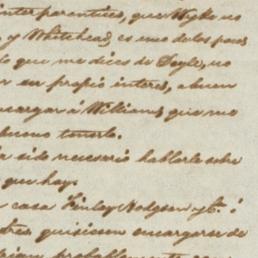 inter parentives, que Wyke no
y Whitehead, es uno de los pocos
lo que me dices de Doyle, no
su propio interes, a buen
encargar á Williams que me
bueno tenerlo.
ha sido necesario hablarle sobre
que hay.
casa Finlay Hodgson y Cª. ó
otros quisiesen encargarse de
probablemente